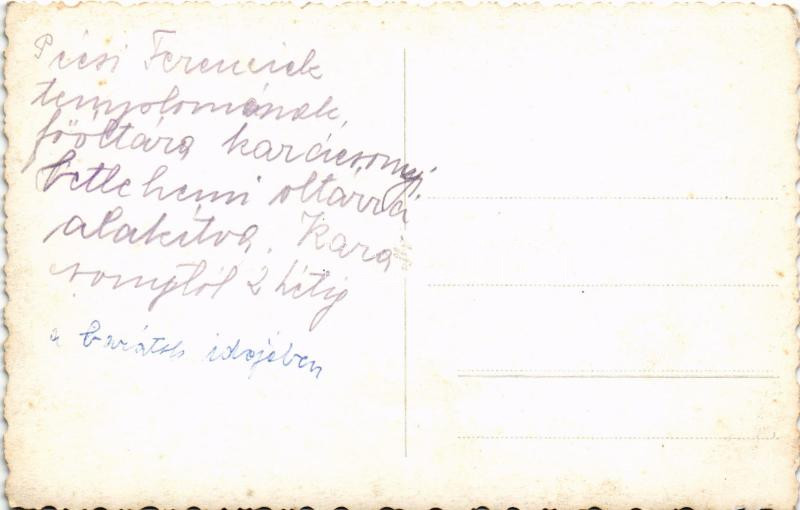 Pécsi Ferenciek
templomának,
főóltára karácsonyi
betlehemi oltárrá
alakítva. Kará
sonytól 2 hétig
a barátok idejében